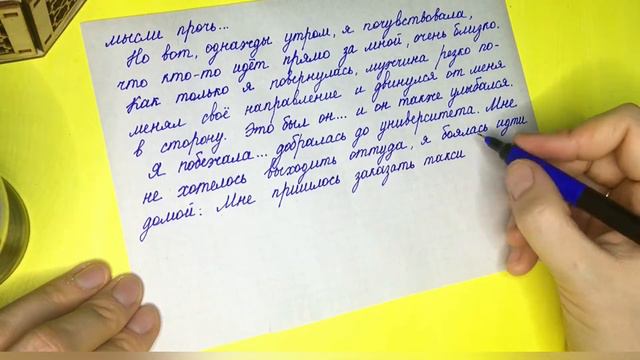 мысли прочь...
Но вот, однажды утром, я почувствовала,
что кто-то идёт прямо за мной, очень близко.
Как только я повернулась, мужчина резко по-
менял своё направление и двинулся от меня
в сторону. Это был он... и он также улыбался.
Я побежала... добралась до университета. Мне
не хотелось выходить оттуда, я боялась идти
домой. Мне пришлось заказать такси